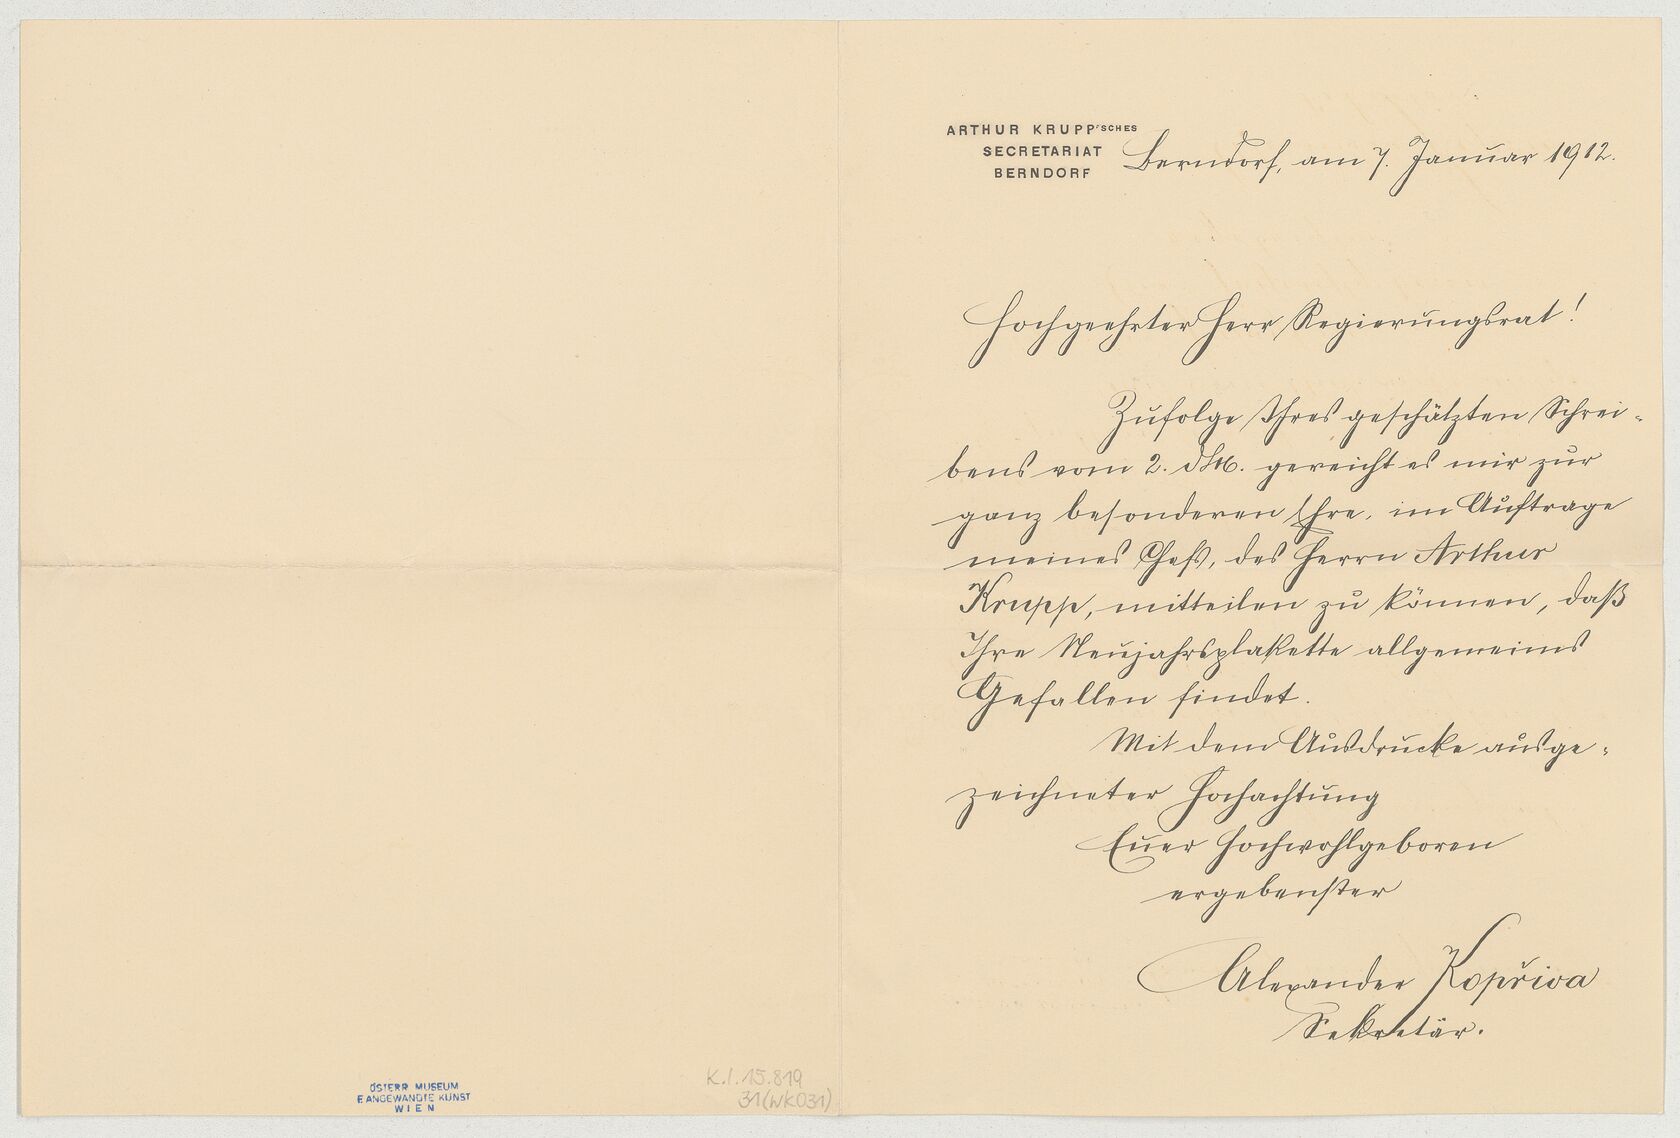 ARTHUR KRUPP'SCHES
SECRETARIAT
BERNDORF
Berndorf, am 7. Januar 1912.
Hochgeehrter Herr Regierungsrat!
Zufolge Ihres geschätzten Schrei-
bens vom 2. ds. gereicht es mir zur
ganz besonderen Ehre, im Auftrage
meines Chefs, des Herrn Arthur
Krupp, mitteilen zu können, daß
Ihre Neujahrsplakette allgemeins
Gefallen findet.
Mit dem Ausdrucke ausge-
zeichneter Hochachtung
Euer Hochwohlgeboren
ergebenster
Alexander Kopřiva
Sekretär.
ÖSTERR MUSEUM
F. ANGEWANDTE KUNST
WIEN
K.I. 15.819
31 (WK031)